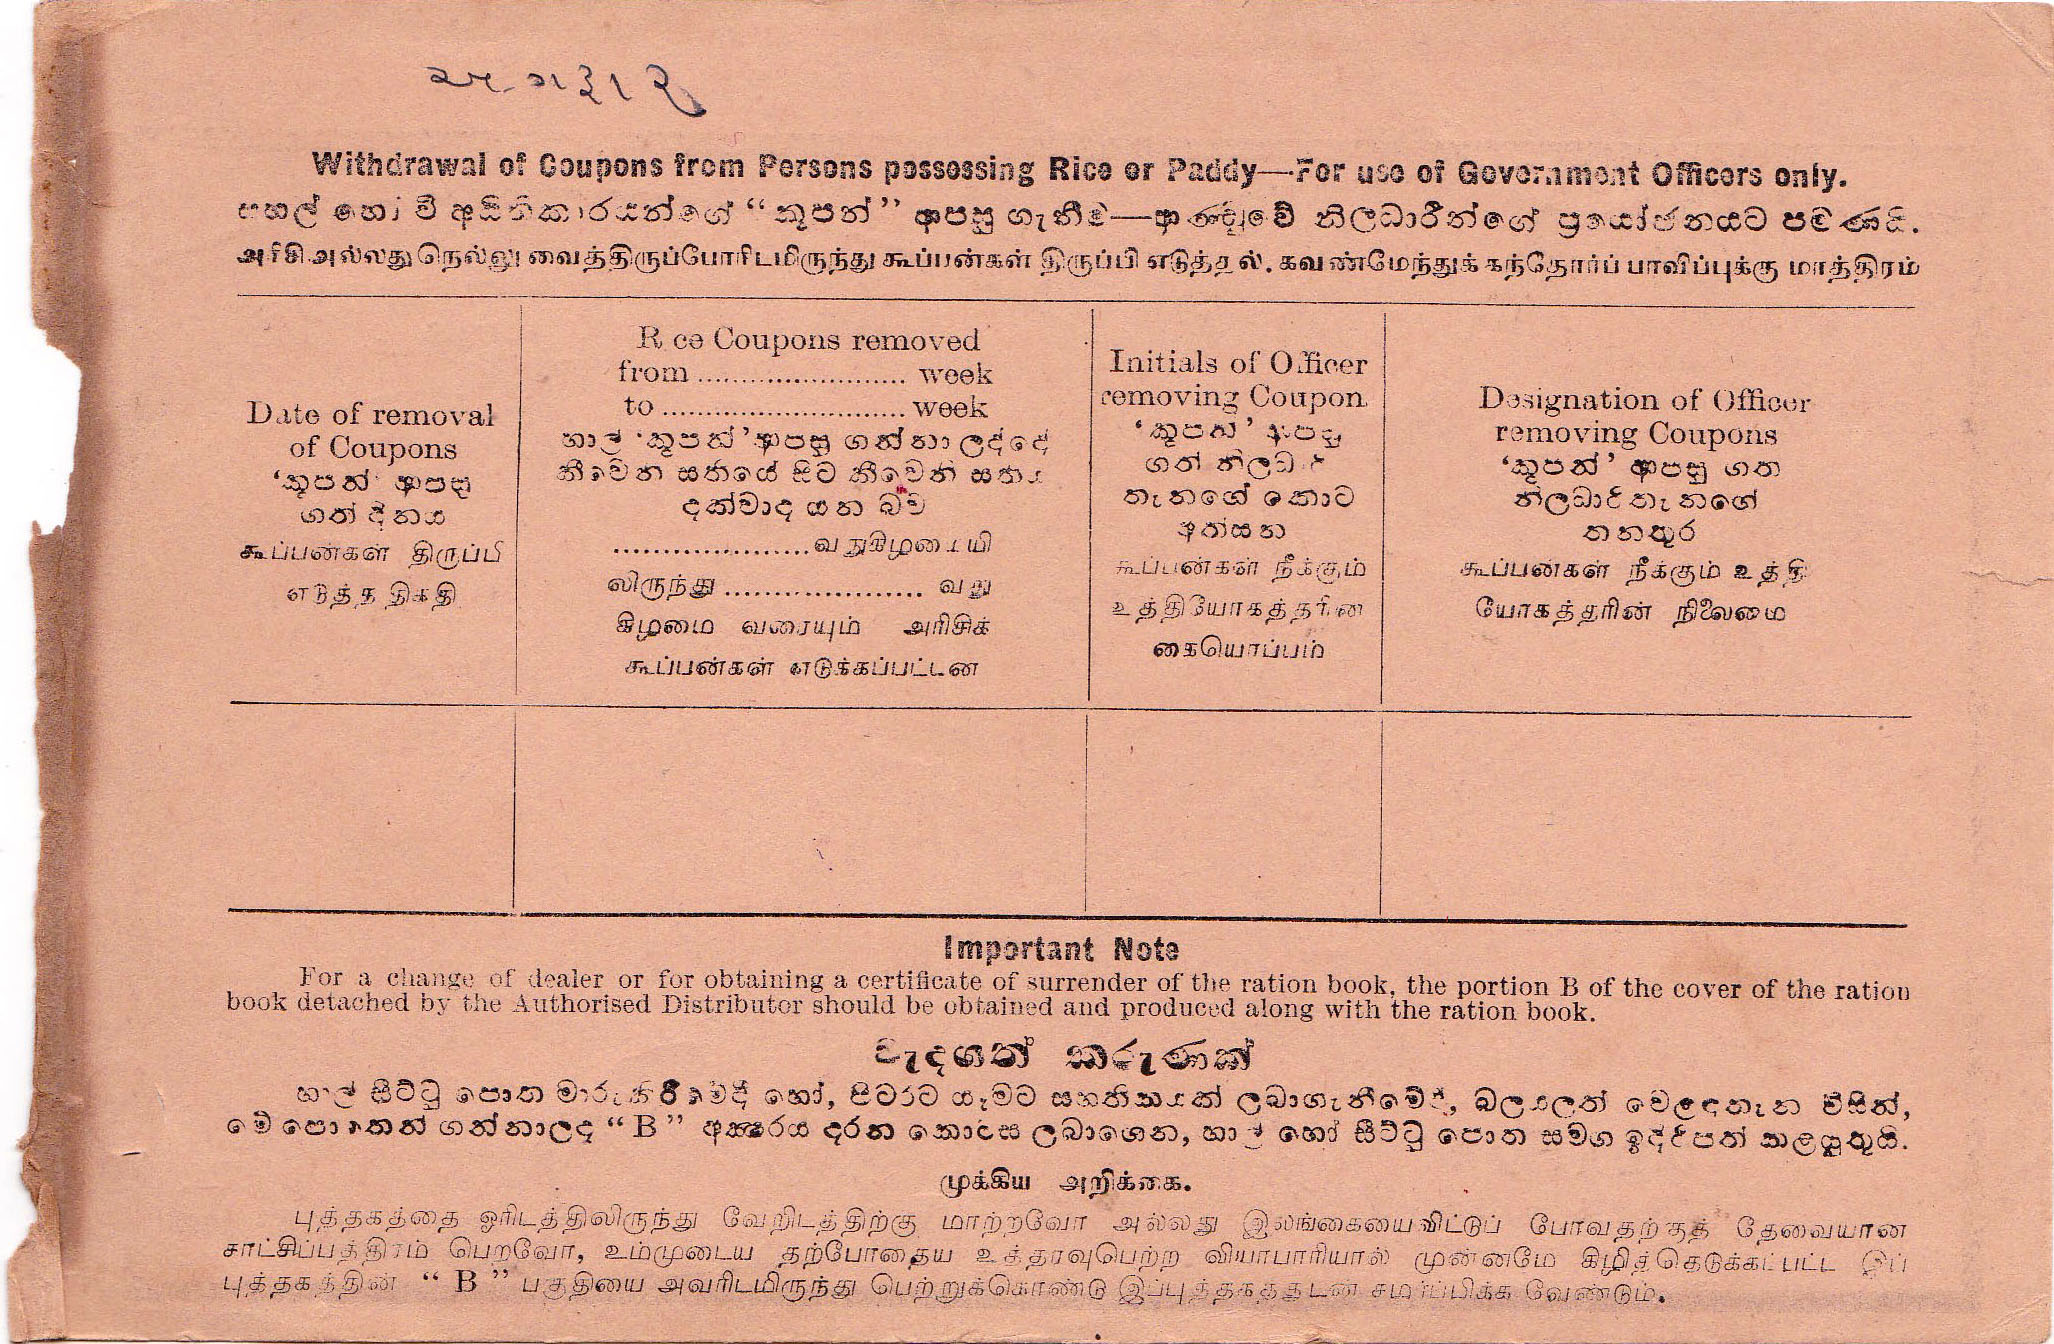 Withdrawal of Coupons from Persons possessing Rice or Paddy—For use of Government Officers only.
සහල් හෝ වී අයිතිකාරයන්ගේ “කූපන්” ආපසු ගැනීම—ආණ්ඩුවේ නිලධාරීන්ගේ ප්‍රයෝජනයට පමණයි.
அரிசி அல்லது நெல்லு வைத்திருப்போரிடமிருந்து கூப்பன்கள் திருப்பி எடுத்தல். கவண்மேந்துக் கந்தோர்ப் பாவிப்புக்கு மாத்திரம்
Date of removal
of Coupons
‘කූපන්’ ආපසු
ගත් දිනය
கூப்பன்கள் திருப்பி
எடுத்த திகதி
Rice Coupons removed
from ........................ week
to ............................ week
හාල් ‘කූපන්’ ආපසු ගන්නා ලද්දේ
කීවෙන සතියේ සිට කීවෙනි සතිය
දක්වාද යන බව
.....................வதுகிழமையி
லிருந்து ..................... வது
கிழமை வரையும் அரிசிக்
கூப்பன்கள் எடுக்கப்பட்டன
Initials of Officer
removing Coupon
‘කූපන්’ ආපසු
ගත් නිලධාරි
තැනගේ කොට
අත්සන
கூப்பன்கள் நீக்கும்
உத்தியோகத்தரின்
கையொப்பம்
Designation of Officer
removing Coupons
‘කූපන්’ ආපසු ගත්
නිලධාරිතැනගේ
තනතුර
கூப்பன்கள் நீக்கும் உத்தி
யோகத்தரின் நிலைமை
Important Note
For a change of dealer or for obtaining a certificate of surrender of the ration book, the portion B of the cover of the ration
book detached by the Authorised Distributor should be obtained and produced along with the ration book.
වැදගත් කරුණක්
හාල් සීට්ටු පොත මාරුකිරීමේදී හෝ, පිටරට යෑමට සහතිකයක් ලබාගැනීමේදී, බලයලත් වෙළඳතැන විසින්,
මේ පොතෙන් ගන්නාලද “B” අක්ෂරය දරන කොටස ලබාගෙන, හාල් හෝ සීට්ටු පොත සමග ඉදිරිපත් කළයුතුයි.
முக்கிய அறிக்கை.
புத்தகத்தை ஓரிடத்திலிருந்து வேறிடத்திற்கு மாற்றவோ அல்லது இலங்கையைவிட்டுப் போவதற்குத் தேவையான
சாட்சிப்பத்திரம் பெறவோ, உம்முடைய தற்போதைய உத்தரவுபெற்ற வியாபாரியால் முன்னமே கிழித்தெடுக்கப்பட்ட இப்
புத்தகத்தின் “B” பகுதியை அவரிடமிருந்து பெற்றுக்கொண்டு இப்புத்தகத்துடன் சமர்ப்பிக்க வேண்டும்.